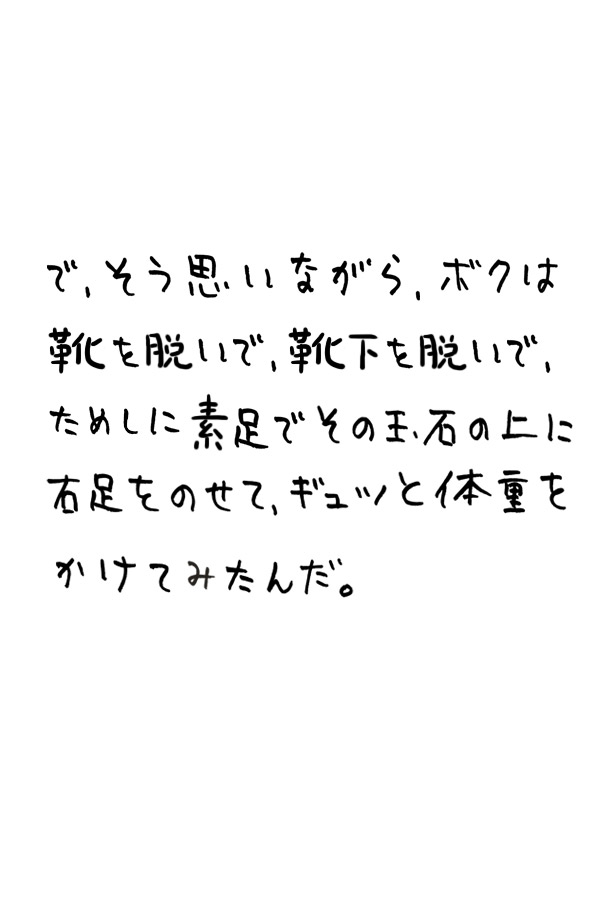 で,そう思いながら,ボクは
靴を脱いで,靴下を脱いで,
ためしに素足でその玉石の上に
右足をのせて,ギュッと体重を
かけてみたんだ。